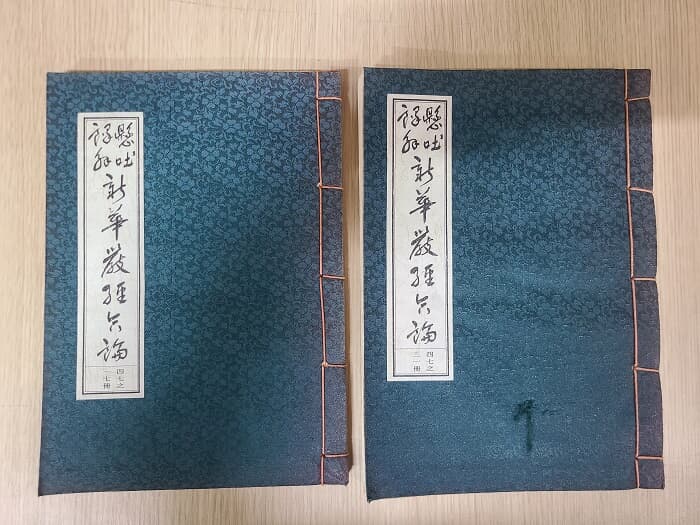 懸吐
譯解
新華嚴經合論
四七之
一七冊
懸吐
譯解
新華嚴經合論
四七之
二一冊